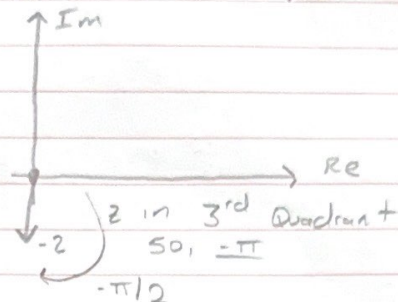 Im
Re
z in 3rd Quadrant
-2
so, -π
-π/2